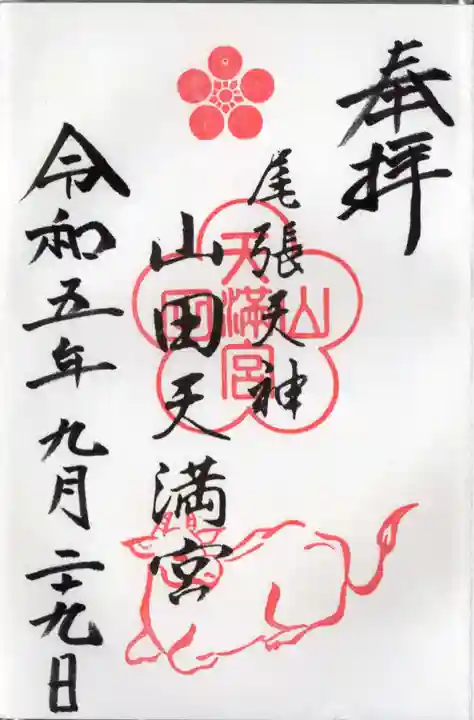 奉拝
尾張天神
山田天満宮
山田
天満宮
令和五年九月二十九日